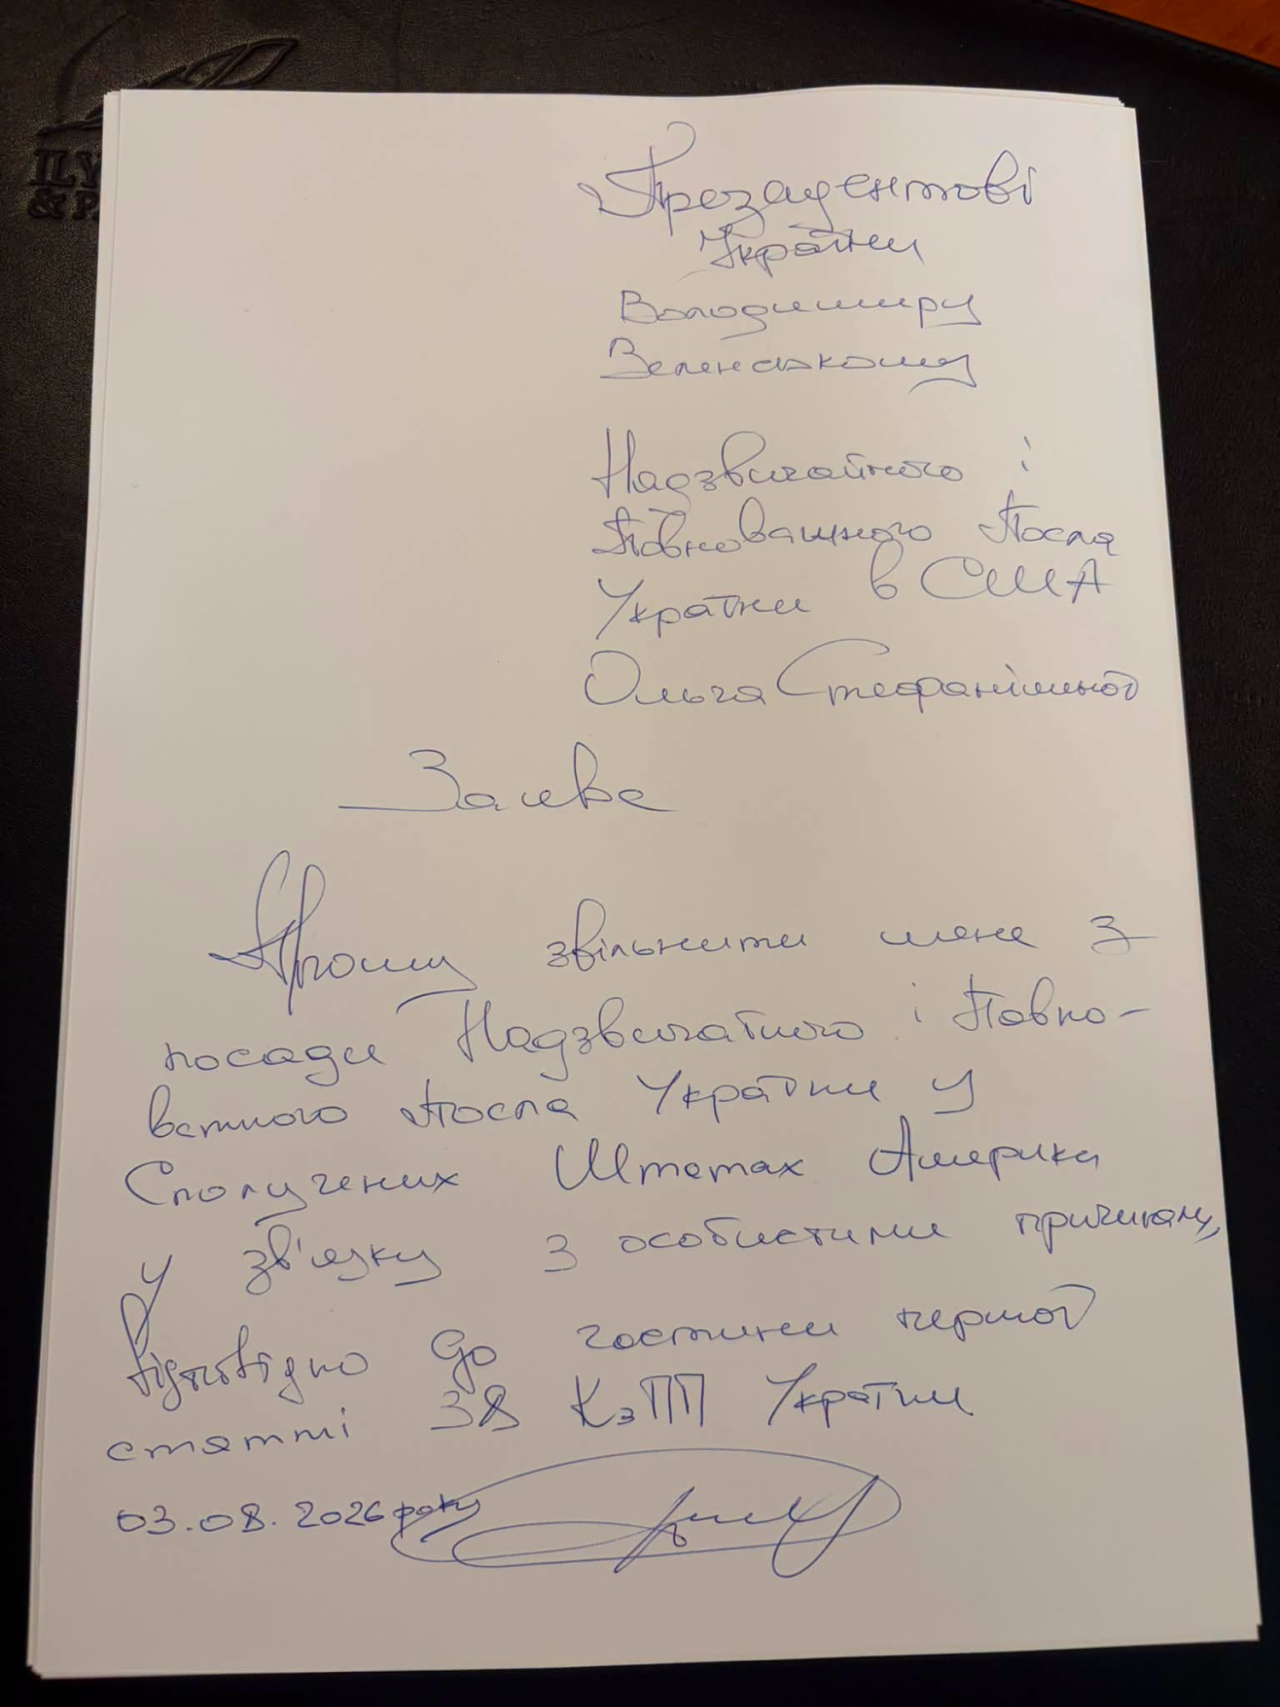 ЦУ
& PA
Президентові
України
Володимиру
Зеленському
Надзвичайного і
Повноважного Посла
України в США
Ольга Стефанішиної
Заява
Прошу звільнити мене з
посади Надзвичайного і Повно-
важного Посла України у
Сполучених Штатах Америки
у зв'язку з особистими причинами,
відповідно до частини першої
статті 38 КзПП України
03.08.2026 року